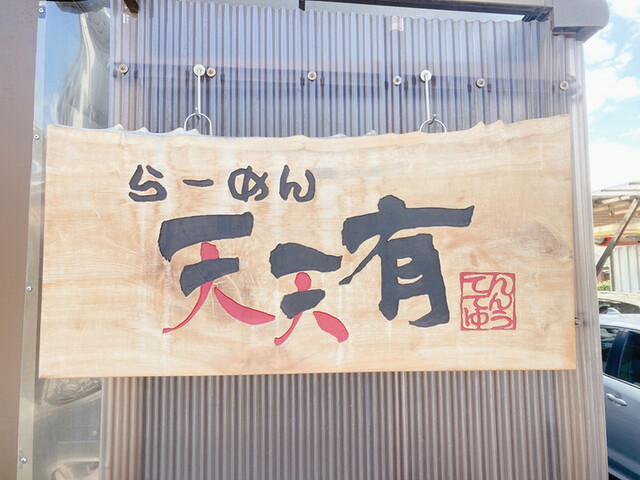 らーめん
天天有
てんてんゆう